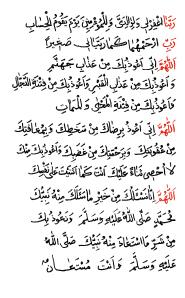 رَبَّنَا اغْفِرْ لِي وَلِوَالِدَيَّ وَلِلْمُؤْمِنِينَ يَوْمَ يَقُومُ الْحِسَابُ
رَبِّ ارْحَمْهُمَا كَمَا رَبَّيَانِي صَغِيرًا
اللَّهُمَّ إِنِّي أَعُوذُ بِكَ مِنْ عَذَابِ جَهَنَّمَ
وَأَعُوذُ بِكَ مِنْ عَذَابِ الْقَبْرِ وَأَعُوذُ بِكَ مِنْ فِتْنَةِ الدَّجَّالِ
وَأَعُوذُ بِكَ مِنْ فِتْنَةِ الْمَحْيَا وَالْمَمَاتِ
اللَّهُمَّ إِنِّي أَعُوذُ بِرِضَاكَ مِنْ سَخَطِكَ وَبِمُعَافَاتِكَ
مِنْ عُقُوبَتِكَ وَبِرَحْمَتِكَ مِنْ غَضَبِكَ وَأَعُوذُ بِكَ مِنْكَ
لَا أُحْصِي ثَنَاءً عَلَيْكَ أَنْتَ كَمَا أَثْنَيْتَ عَلَى نَفْسِكَ
اللَّهُمَّ إِنَّا نَسْأَلُكَ مِنْ خَيْرِ مَا سَأَلَكَ مِنْهُ نَبِيُّكَ
مُحَمَّدٌ صَلَّى اللَّهُ عَلَيْهِ وَسَلَّمَ وَنَعُوذُ بِكَ
مِنْ شَرِّ مَا اسْتَعَاذَ مِنْهُ نَبِيُّكَ صَلَّى اللَّهُ
عَلَيْهِ وَسَلَّمَ وَأَنْتَ الْمُسْتَعَانُ